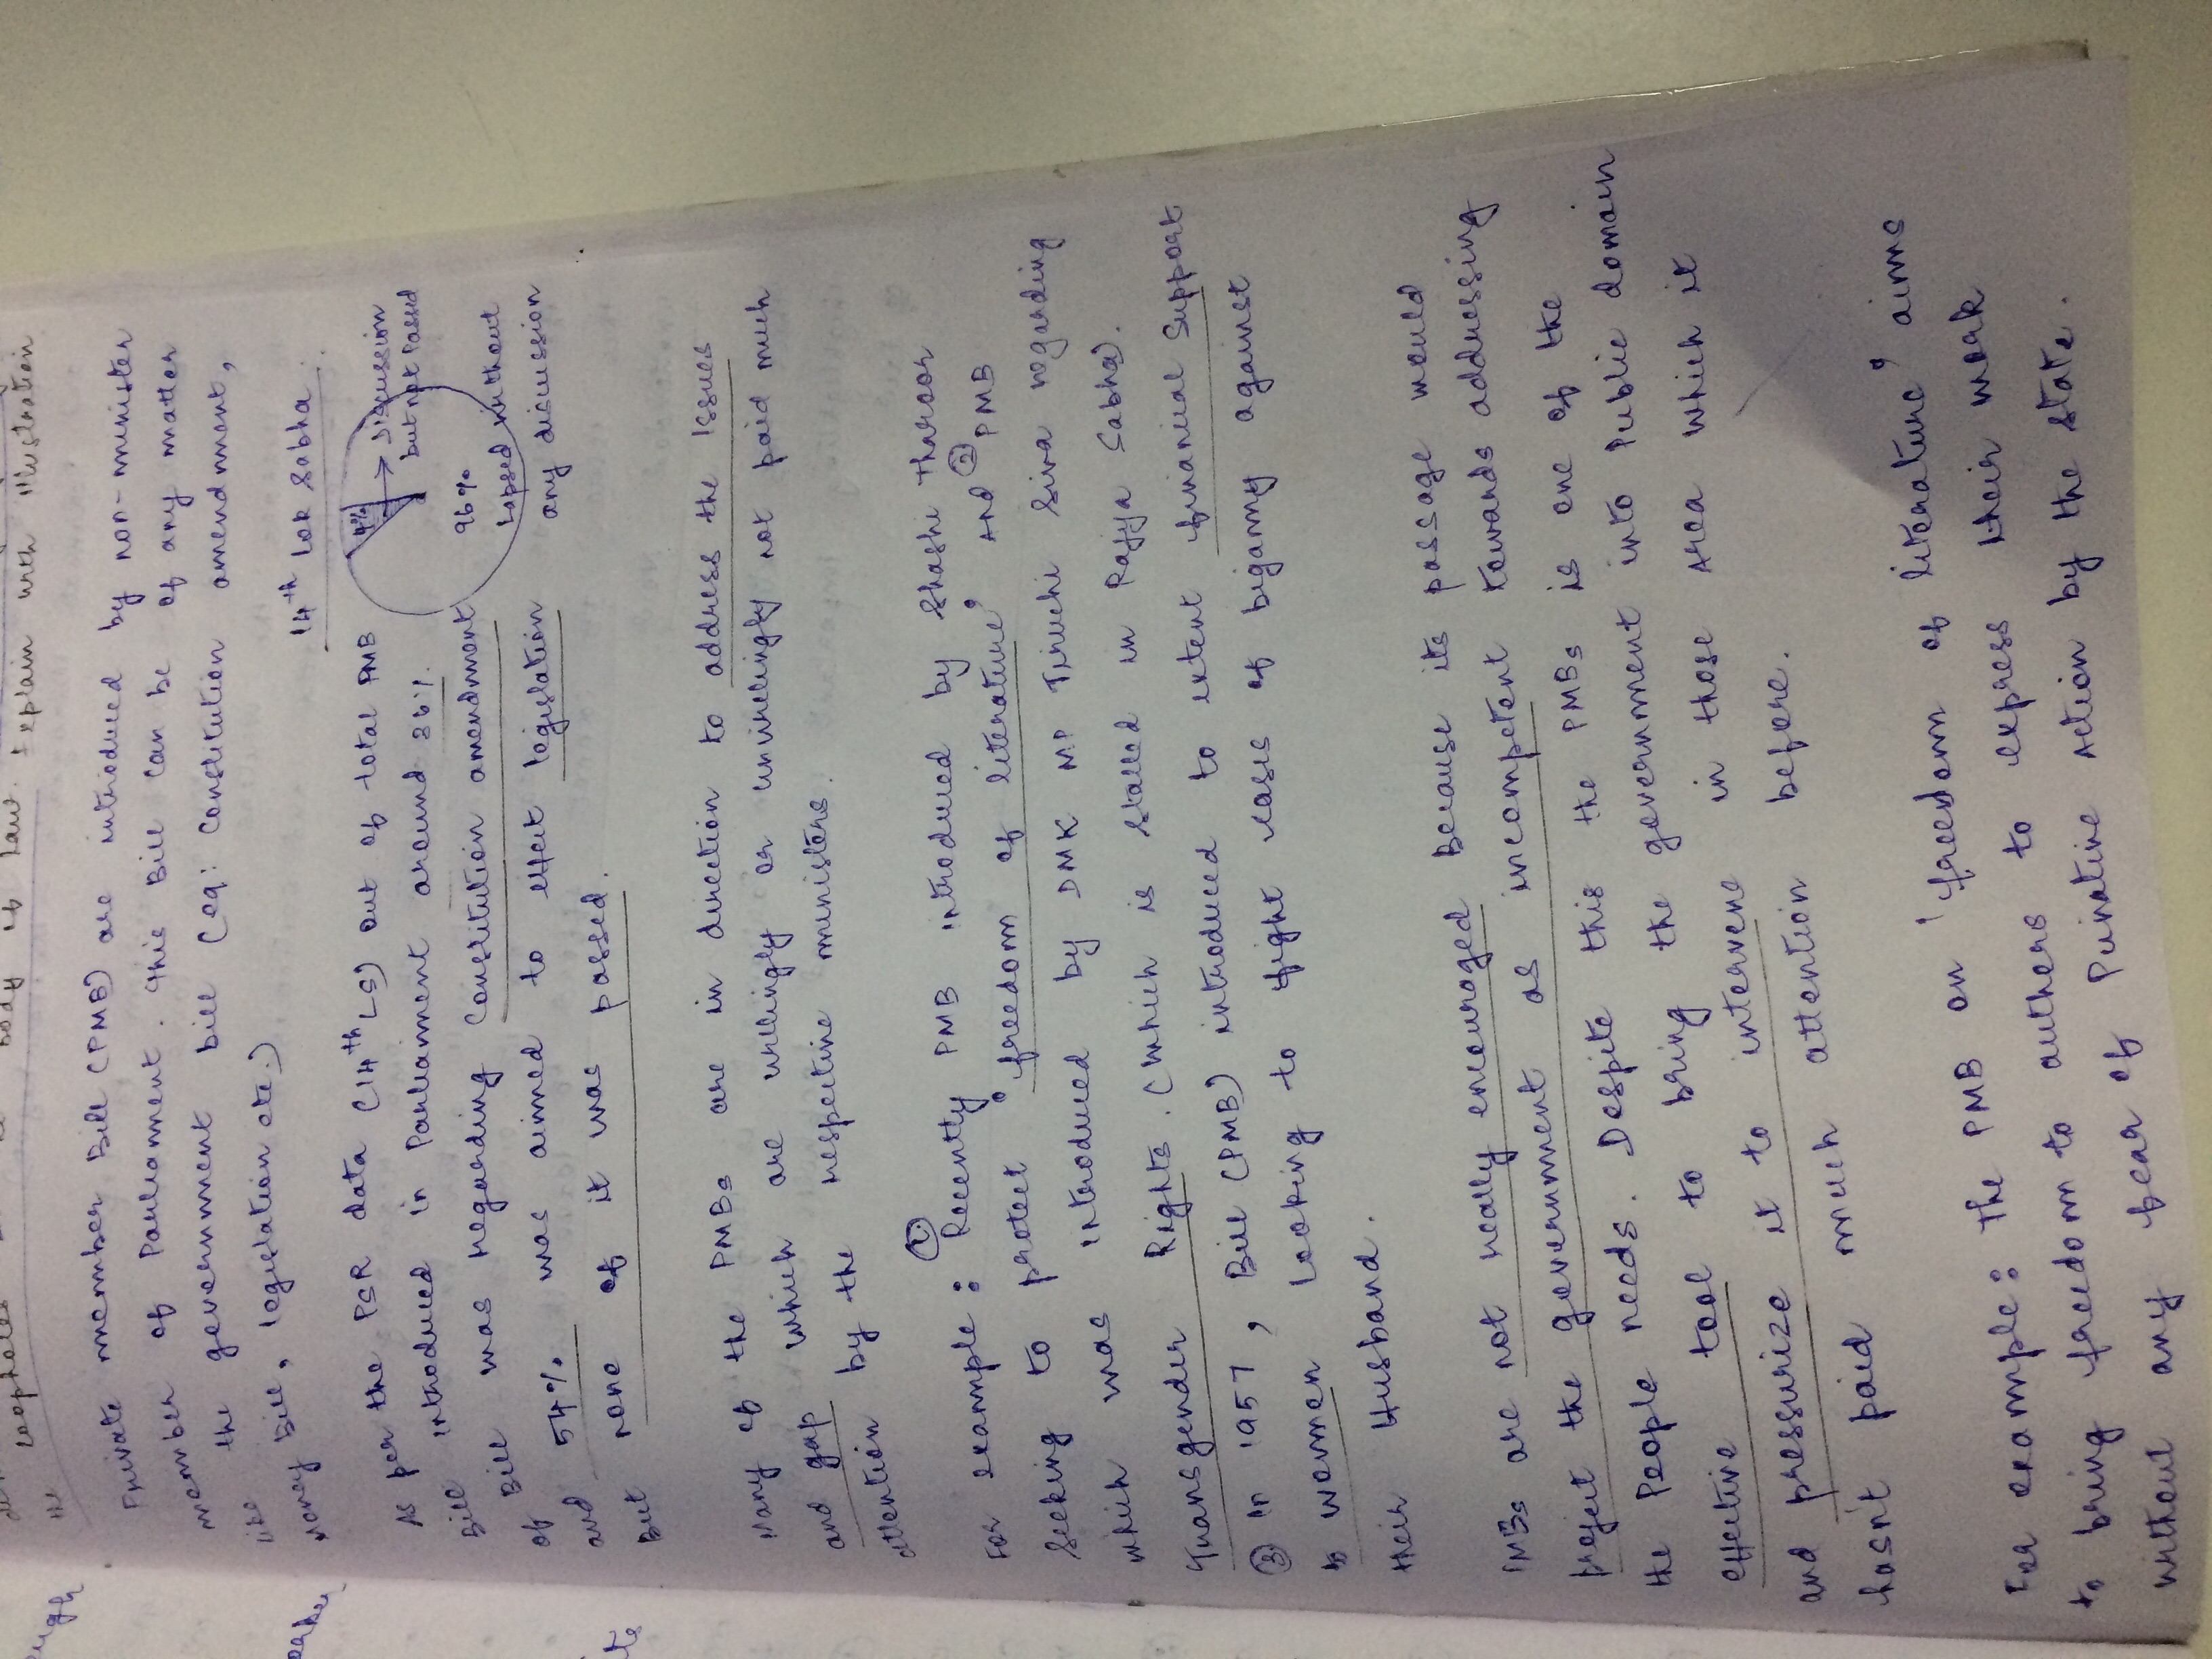 loopholes body of law. Explain with illustration
Private member Bill (PMB) are introduced by non-minister
member of Parliament. This Bill can be of any matter
like the government bill (eg: Constitution amendment,
Money Bill, legislation etc.)
14th Lok Sabha.
As per the PSR data (14th LS) out of total PMB
Bill introduced in Parliament around 36%.
of Bill was regarding Constitution amendment
and 54% was aimed to effect legislation
But none of it was passed.
4% → Discussion
but not Passed
96%
Lapsed without
any discussion
Many of the PMBs are in direction to address the Issues
and gap which are unlikingly or unlikingly not paid much
attention by the respective ministers.
For example: ① Recently PMB introduced by Shashi tharoor
Seeking to protect 'freedom of literature' AND ② PMB
which was introduced by DMK MP Tiruchi Siva regarding
Transgender Rights. (which is stalled in Rajya Sabha).
③ In 1957, Bill (PMB) introduced to extent finanical Support
to women Looking to fight cases of bigamy against
their Husband.
PMBs are not really encouraged Because its passage would
project the government as incompetent towards addressing
the People needs. Despite this the PMBs is one of the
effective tool to bring the government into Public domain
and pressurize it to intervene in those Area which it
hasn't paid much attention before.
For example: The PMB on 'freedom of literature' aims
to bring freedom to authors to express their work
without any fear of Punitive Action by the State.
ough
te